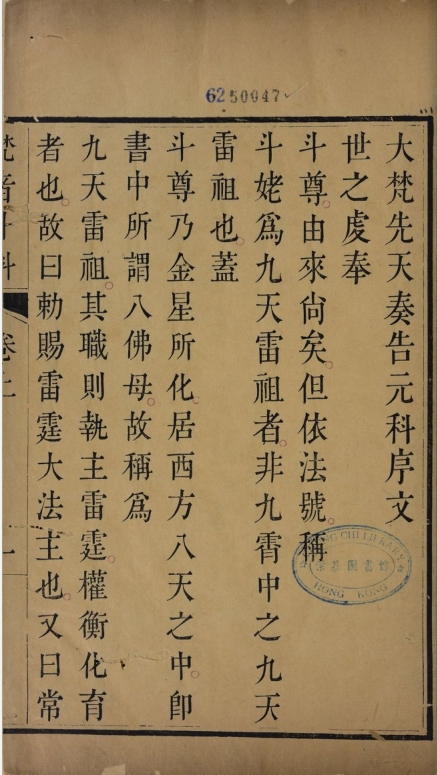 6250047
大梵先天奏告元科序文
世之虔奉
斗尊。由來尙矣。但依法號。稱
斗姥爲九天雷祖者。非九霄中之九天
雷祖也。蓋
斗尊乃金星所化。居西方八天之中。卽
書中所謂八佛母。故稱爲
九天雷祖。其職則執主雷霆。權衡化育
者也。故曰勅賜雷霆大法主也。又曰常
梵音斗科
卷二
一
CHI LIN
景堂圖書館
HONG KONG